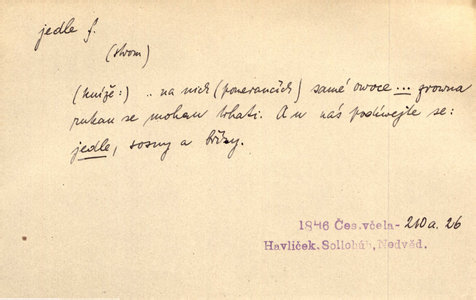 jedle f.
(strom)
(kníže:) .. na nich (pomerančích) samé owoce ... zrowna
rukau se mohau trhati. A u nás podiwejte se:
jedle, sosny a břízy.
1846 Čes.včela- 210 a. 26
Havlíček. Sollohub, Nedvěd.